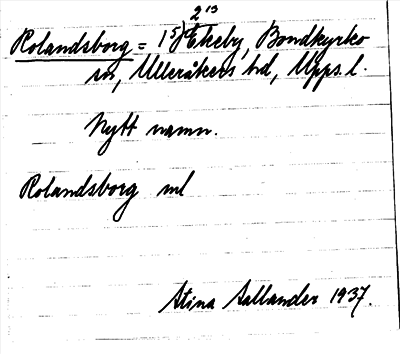 2 13
Rolandsborg = 15) Ekeby, Bondkyrko
sn, Ulleråkers hd, Upps. l.
Nytt namn.
Rolandsborg ml
Stina Aallander 1937.